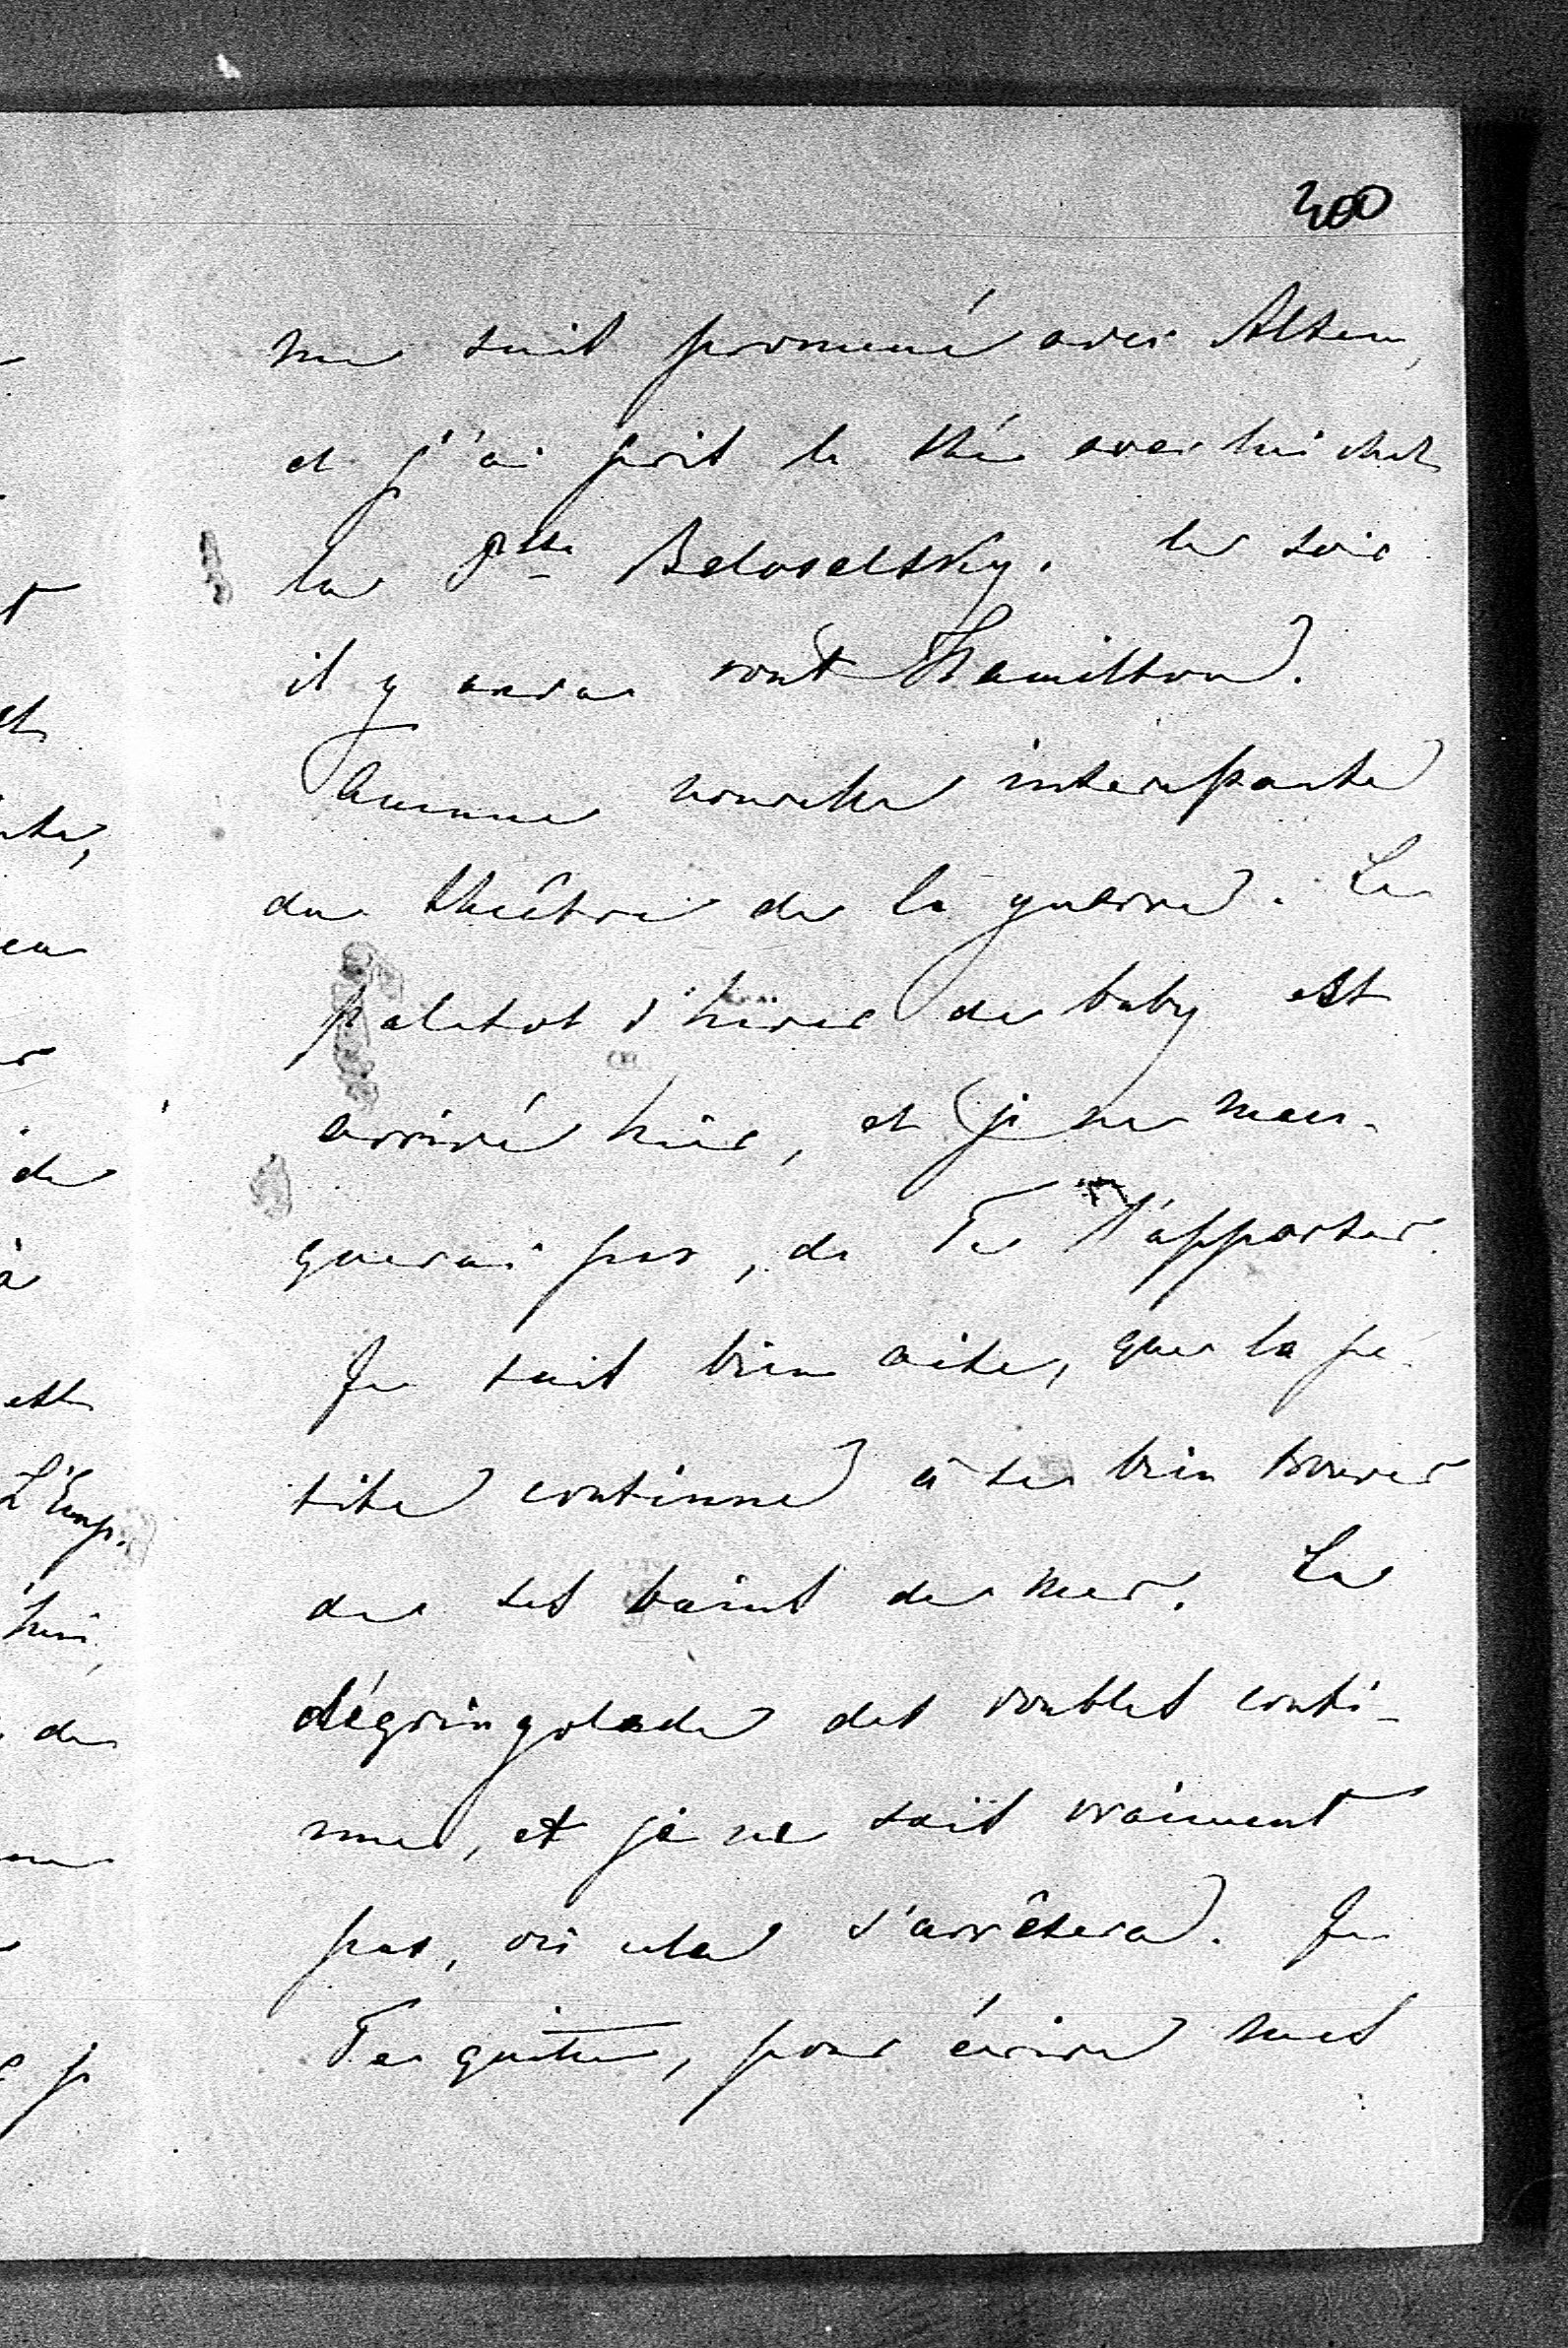 300
me suis promené avec Alten,
et j'ai pris le thé avec lui chez
la Psse Beloselsky. Ce soir
il y aura rout Hamilton.
Aucune nouvelle interessante
du théâtre de la guerre. Le
paletot d'hiver de baby est
arrivé hier, et je ne man-
querai pas, de Te l'apporter.
Je suis bien aise, que la pe-
tite continue à se bien trouver
de ses bains de mer. La
dégringolade des roubles conti-
nue, et je ne sais vraiment
pas, où cela s'arrêtera. Je
Te quitte, pour écrire mes
de
à
est
L'Emp.
lui,
de